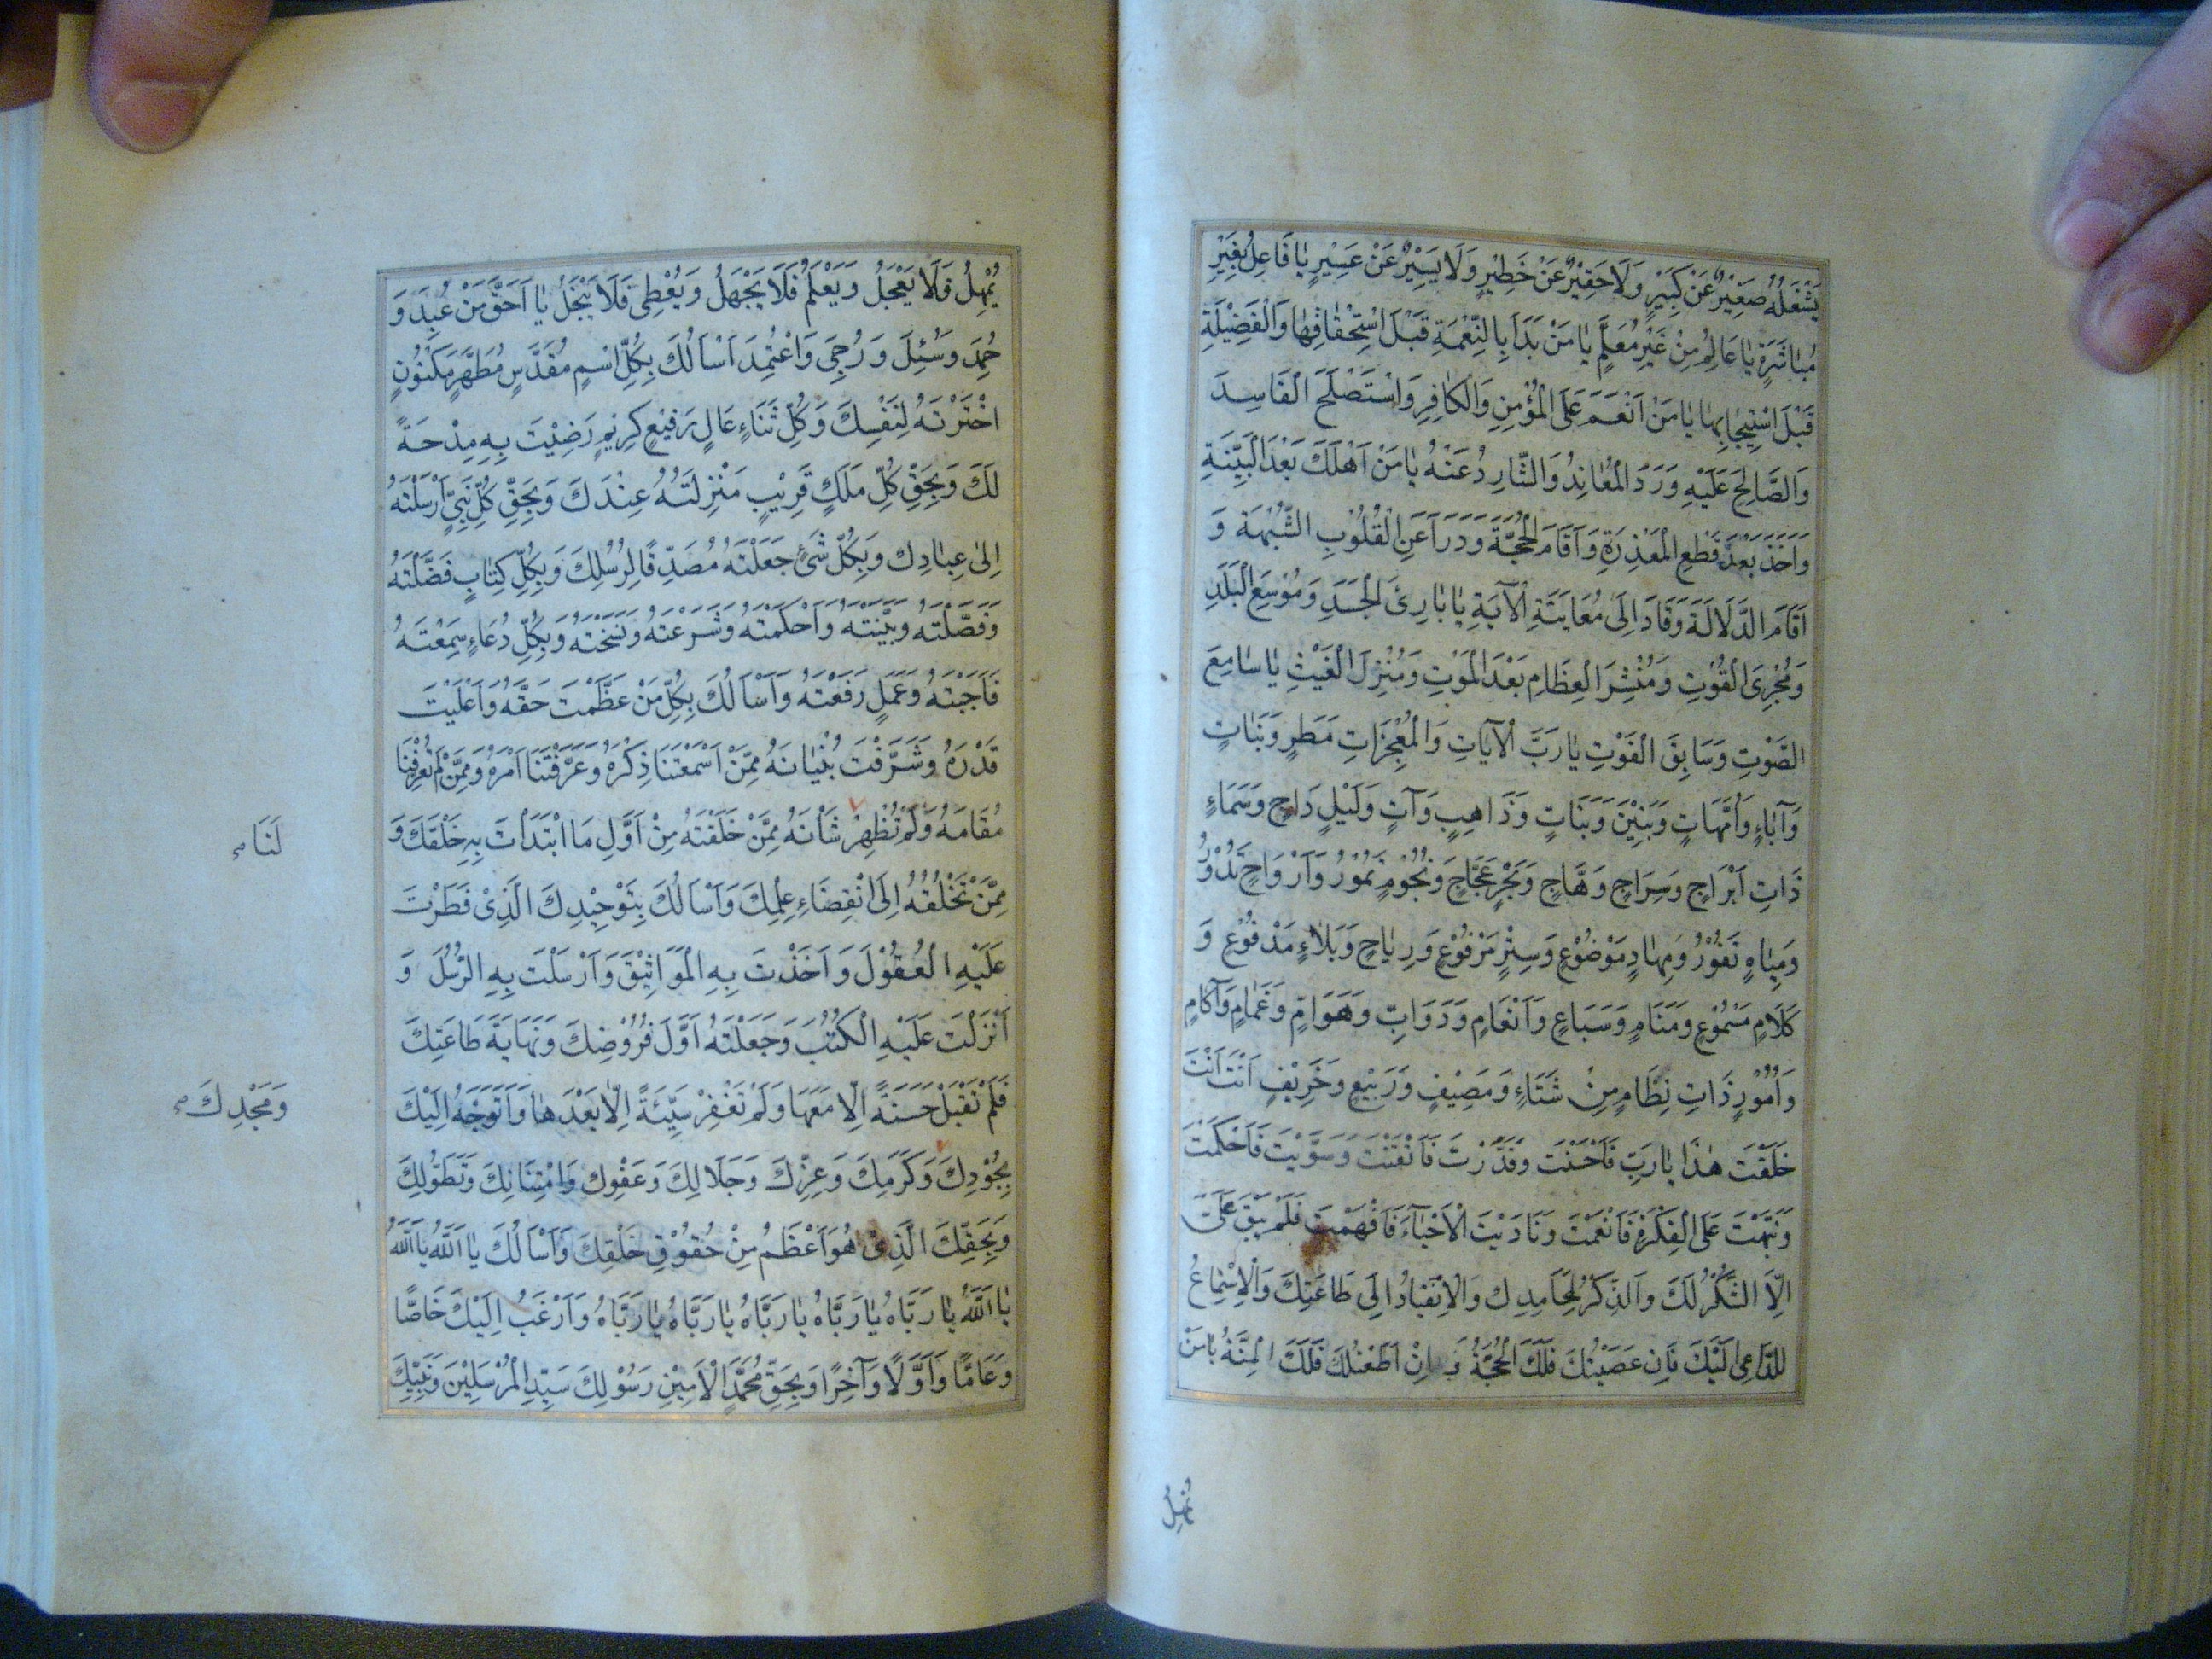 يَشْغَلُهُ صَغِيْرٌ عَنْ كَبِيْرٍ وَلَا حَقِيْرٌ عَنْ خَطِيْرٍ وَلَا يَسِيْرٌ عَنْ عَسِيْرٍ يَا فَاعِلُ بِغَيْرِ
مُبَاشَرَةٍ يَا عَالِمُ مِنْ غَيْرِ مُعَلِّمٍ يَا مَنْ بَدَأَ بِالنِّعْمَةِ قَبْلَ اسْتِحْقَاقِهَا وَالْفَضِيْلَةِ
قَبْلَ اسْتِيْجَابِهَا يَا مَنْ اَنْعَمَ عَلَى الْمُؤْمِنِ وَالْكَافِرِ وَاسْتَصْلَحَ الْفَاسِدَ
وَالصَّالِحَ عَلَيْهِ وَرَدَّ الْمُعَانِدُ وَالشَّارِدُ عَنْهُ يَا مَنْ اَهْلَكَ بَعْدَ الْبَيِّنَةِ
وَاَخَذَ بَعْدَ قَطْعِ الْمَعْذِرَةِ وَاَقَامَ الْحُجَّةَ وَدَرَاَ عَنِ الْقُلُوْبِ الشُّبْهَةَ وَ
اَقَامَ الدَّلَالَةَ وَقَادَ اِلَى مُعَايَنَةِ الْاٰيَةِ يَا بَارِئَ الْجَسَدِ وَمُوْسِعَ الْبَلَدِ
وَمُجْرِىَ الْقُوْتِ وَمُنْشِرَ الْعِظَامِ بَعْدَ الْمَوْتِ وَمُنْزِلَ الْغَيْثِ يَا سَامِعَ
الصَّوْتِ وَسَابِقَ الْفَوْتِ يَا رَبَّ الْآيَاتِ وَالْمُعْجِزَاتِ مَطَرٍ وَنَبَاتٍ
وَآبَاءٍ وَاُمَّهَاتٍ وَبَنِيْنَ وَبَنَاتٍ وَذَاهِبٍ وَآتٍ وَلَيْلٍ دَاجٍ وَسَمَاءٍ
ذَاتِ اَبْرَاجٍ وَسِرَاجٍ وَهَّاجٍ وَبَحْرٍ عَجَّاجٍ وَنُجُوْمٍ تَمُوْرُ وَاَرْوَاحٍ تَدُوْرُ
وَمِيَاهٍ تَفُوْرُ وَمِهَادٍ مَوْضُوْعٍ وَسِتْرٍ مَرْفُوْعٍ وَرِيَاحٍ وَبَلَاءٍ مَدْفُوْعٍ وَ
كَلَامٍ مَسْمُوْعٍ وَمَنَامٍ وَسِبَاعٍ وَاَنْعَامٍ وَدَوَابَّ وَهَوَامٍّ وَغَمَامٍ وَآكَامٍ
وَاُمُوْرٍ ذَاتِ نِظَامٍ مِنْ شَتَاءٍ وَمَصِيْفٍ وَرَبِيْعٍ وَخَرِيْفٍ اَنْتَ اَنْتَ
خَلَقْتَ هٰذَا يَا رَبِّ فَاَحْسَنْتَ وَقَدَّرْتَ فَاَتْقَنْتَ وَسَوَّيْتَ فَاَحْكَمْتَ
وَنَبَّهْتَ عَلَى الْفِكْرَةِ فَاَنْعَمْتَ وَنَادَيْتَ الْاَحْيَاءَ فَاَفْهَمْتَ فَلَمْ يَبْقَ عَلَىَّ
اِلَّا الشُّكْرُ لَكَ وَالذِّكْرُ لِمَحَامِدِكَ وَالْاِنْقِيَادُ اِلَى طَاعَتِكَ وَالْاِسْتِمَاعُ
لِلدَّاعِى اِلَيْكَ فَاِنْ عَصَيْتُكَ فَلَكَ الْحُجَّةُ وَاِنْ اَطَعْتُكَ فَلَكَ الْمِنَّةُ يَا مَنْ
يُمْهِلُ
يُمْهِلُ فَلَا يَعْجَلُ وَيَعْلَمُ فَلَا يَجْهَلُ وَيُعْطِى فَلَا يَبْخَلُ يَا اَحَقَّ مَنْ عُبِدَ وَ
حُمِدَ وَسُئِلَ وَرُجِىَ وَاعْتُمِدَ اَسْاَلُكَ بِكُلِّ اسْمٍ مُقَدَّسٍ مُطَهَّرٍ مَكْنُوْنٍ
اخْتَرْتَهُ لِنَفْسِكَ وَكُلِّ ثَنَاءٍ عَالٍ رَفِيْعٍ كَرِيْمٍ رَضِيْتَ بِهِ مِدْحَةً
لَكَ وَبِحَقِّ كُلِّ مَلَكٍ قَرِيْبٍ مَنْزِلَتُهُ عِنْدَكَ وَبِحَقِّ كُلِّ نَبِىٍّ اَرْسَلْتَهُ
اِلَى عِبَادِكَ وَبِكُلِّ شَىْءٍ جَعَلْتَهُ مُصَدِّقًا لِرُسُلِكَ وَبِكُلِّ كِتَابٍ فَضَّلْتَهُ
وَفَصَّلْتَهُ وَبَيَّنْتَهُ وَاَحْكَمْتَهُ وَشَرَعْتَهُ وَنَسَخْتَهُ وَبِكُلِّ دُعَاءٍ سَمِعْتَهُ
فَاَجَبْتَهُ وَعَمَلٍ رَفَعْتَهُ وَاَسْاَلُكَ بِكُلِّ مَنْ عَظَّمْتَ حَقَّهُ وَاَعْلَيْتَ
قَدْرَهُ وَشَرَّفْتَ بُنْيَانَهُ مِمَّنْ اَسْمَعْتَنَا ذِكْرَهُ وَعَرَّفْتَنَا اَمْرَهُ وَمِمَّنْ لَمْ تُعَرِّفْنَا
مُقَامَهُ وَلَمْ تُظْهِرْ شَأْنَهُ مِمَّنْ خَلَقْتَهُ مِنْ اَوَّلِ مَا ابْتَدَأْتَ بِهِ خَلْقَكَ وَ
لَنَا
مِمَّنْ تَخْلُقُهُ اِلَى انْقِضَاءِ عِلْمِكَ وَاَسْاَلُكَ بِتَوْحِيْدِكَ الَّذِىْ فَطَرْتَ
عَلَيْهِ الْعُقُوْلَ وَاَخَذْتَ بِهِ الْمَوَاثِيْقَ وَاَرْسَلْتَ بِهِ الرُّسُلَ وَ
اَنْزَلْتَ عَلَيْهِ الْكُتُبَ وَجَعَلْتَهُ اَوَّلَ فُرُوْضِكَ وَنِهَايَةَ طَاعَتِكَ
فَلَمْ تَقْبَلْ حَسَنَةً اِلَّا مَعَهَا وَلَمْ تَغْفِرْ سَيِّئَةً اِلَّا بَعْدَهَا وَاَتَوَجَّهُ اِلَيْكَ
وَمَجْدِكَ
بِجُوْدِكَ وَكَرَمِكَ وَعِزِّكَ وَجَلَالِكَ وَعَفْوِكَ وَامْتِنَانِكَ وَتَطَوُّلِكَ
وَبِحَقِّكَ الَّذِىْ هُوَ اَعْظَمُ مِنْ حُقُوْقِ خَلْقِكَ وَاَسْاَلُكَ يَا اَللّٰهُ يَا اَللّٰهُ
يَا اَللّٰهُ يَا رَبَّاهُ يَا رَبَّاهُ يَا رَبَّاهُ يَا رَبَّاهُ يَا رَبَّاهُ وَاَرْغَبُ اِلَيْكَ خَاصًّا
وَعَامًّا وَاَوَّلًا وَآخِرًا وَبِحَقِّ مُحَمَّدٍ الْاَمِيْنِ رَسُوْلِكَ سَيِّدِ الْمُرْسَلِيْنَ وَنَبِيِّكَ